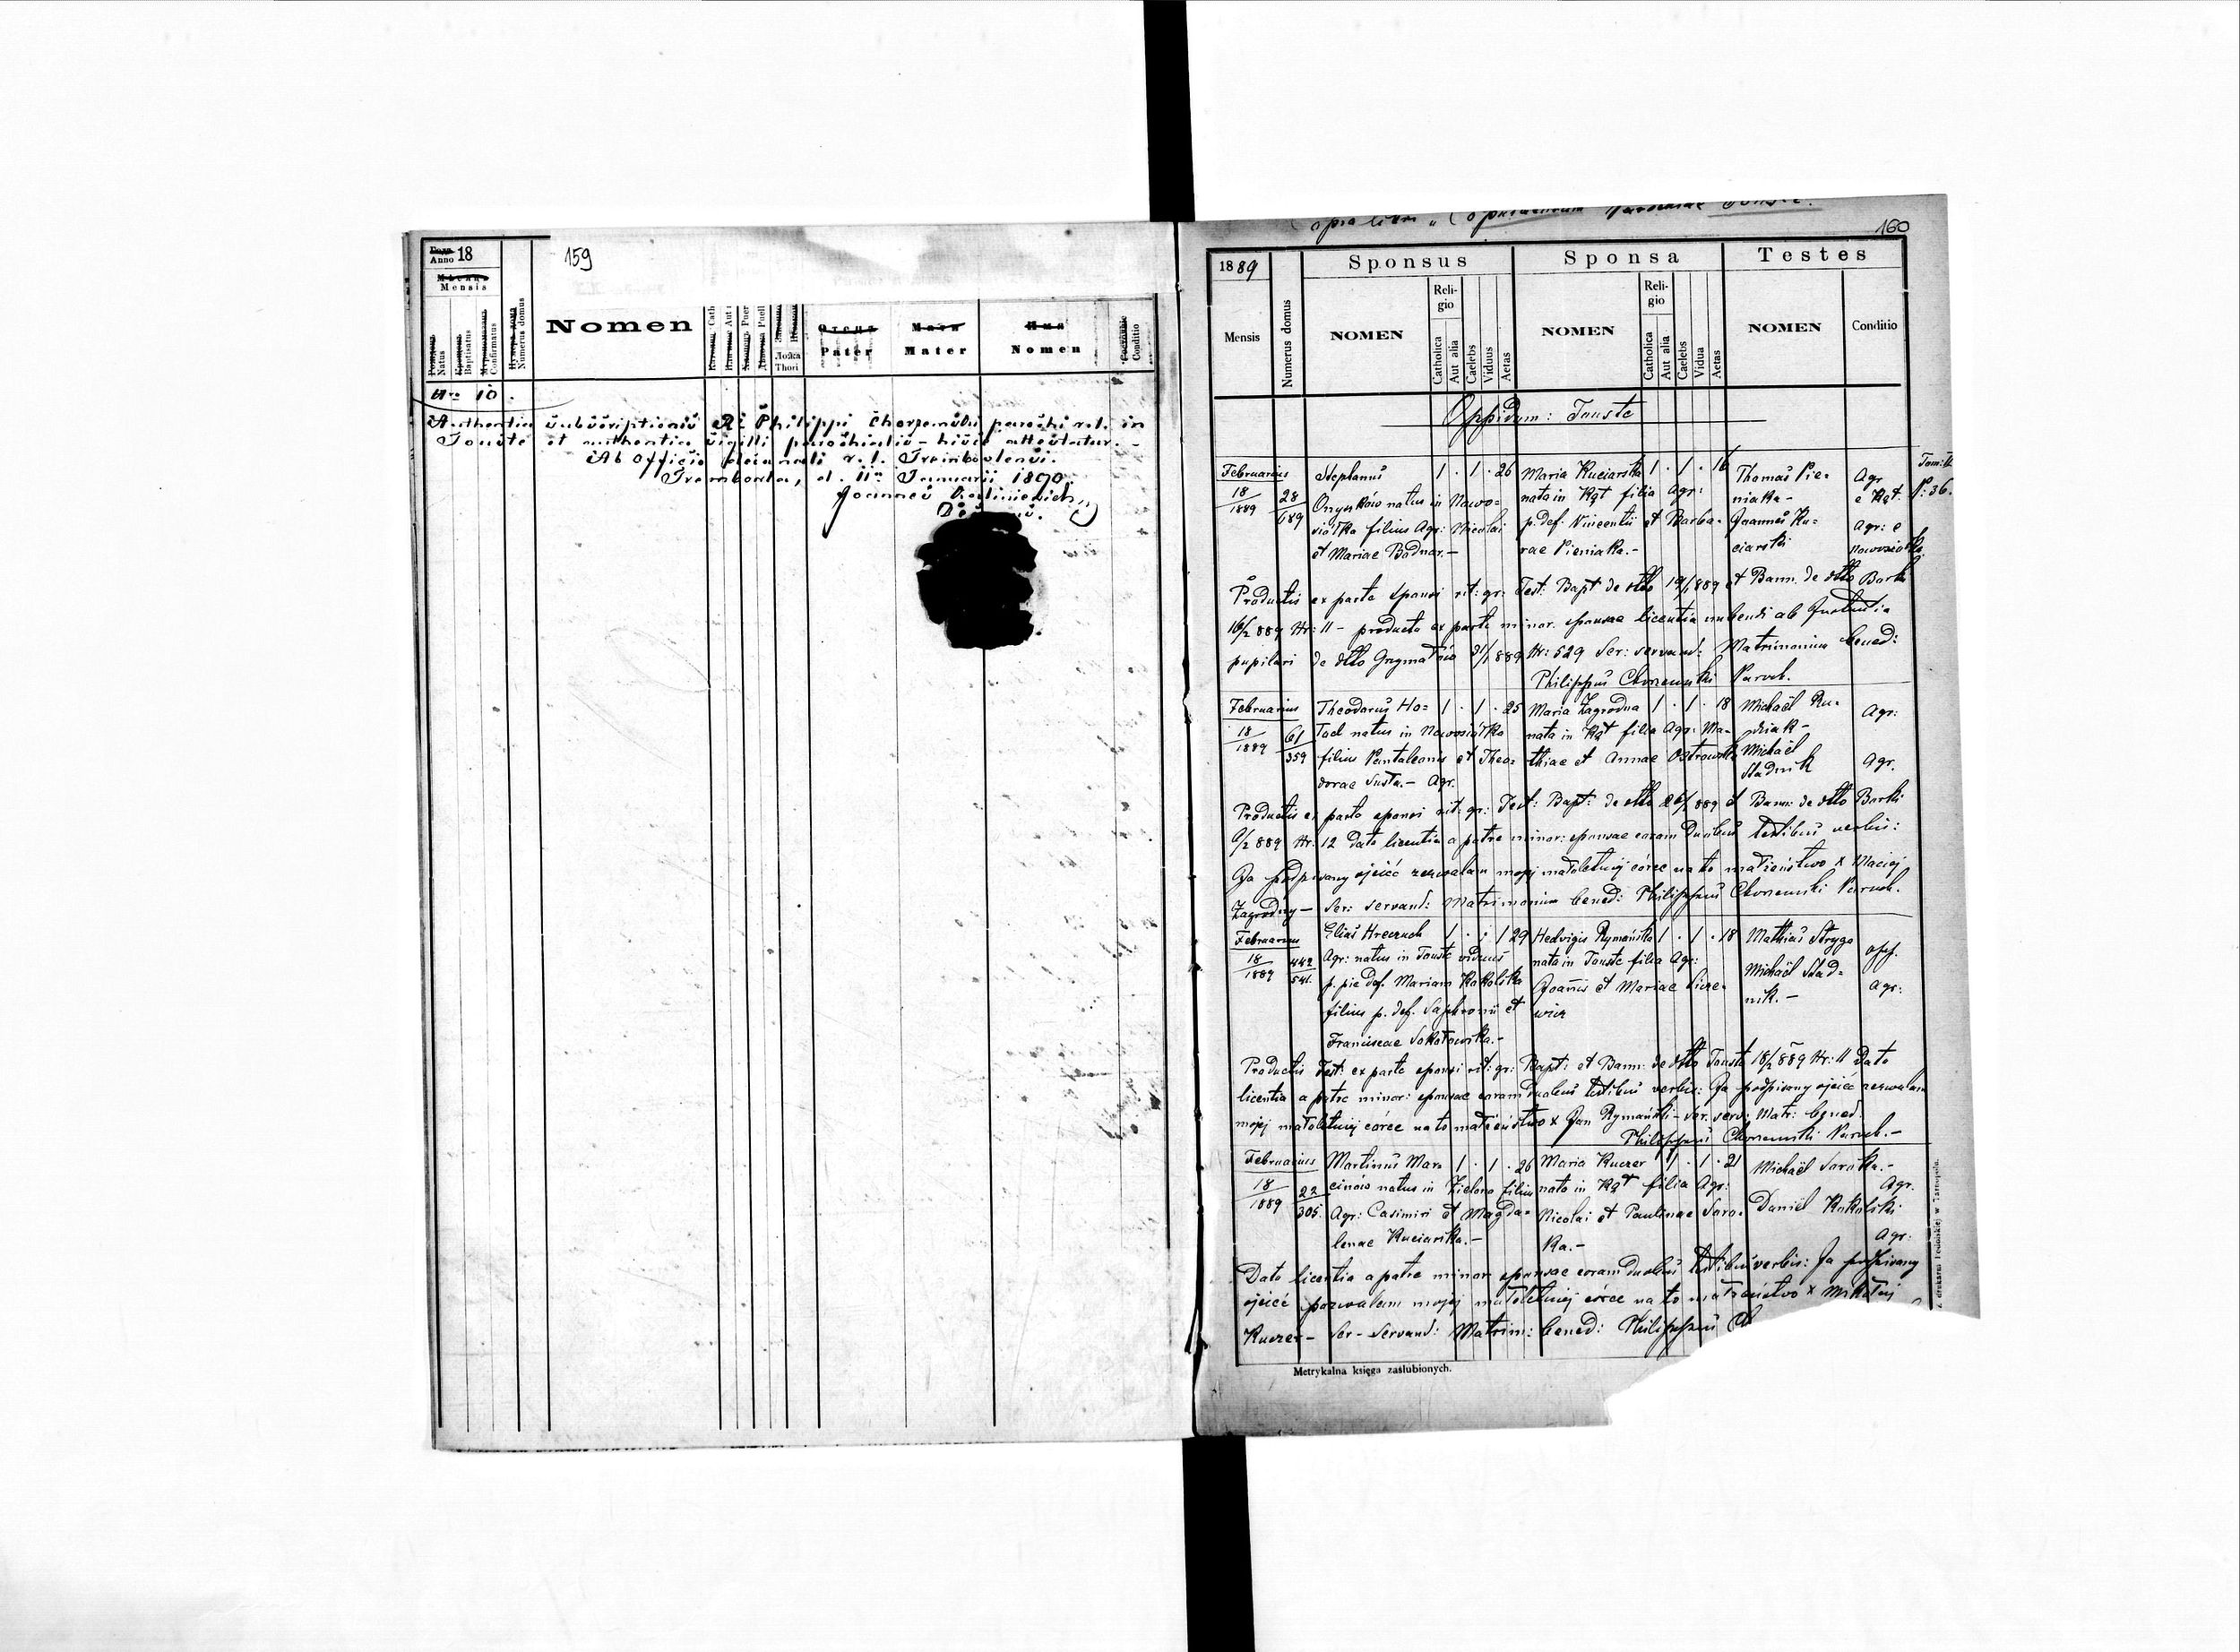 Anno 18
Mensis
159
Natus
Baptisatus
Confirmatus
Numerus domus
Nomen
Thori
Pater
Mater
Nomen
Conditio
Nro 10.
Authentia subscriptionis Philippi Chorzemski parochi r. l. in
Touste et authentia sigilli parochialis – hisce attestatur. –
Ab officio decanali r. l. Trembovlensi.
Trembovla, d. 11 Januarii 1890.
Joannes
Copia libri „Copulatorum Parochiae Touste.
160
1889
Sponsus
Sponsa
Testes
Mensis
Numerus domus
NOMEN
Religio
Catholica
Aut alia
Caelebs
Viduus
Aetas
NOMEN
Religio
Catholica
Aut alia
Caelebs
Vidua
Aetas
NOMEN
Conditio
Oppidum: Touste
Februarius
18/1889
28/689
Stephanus
Onyśków natus in Nowo=
siółka filius Agr: Nicolai
et Mariae Bodnar. –
1 . 1 . 26
Maria Kuciarska
nata in Kąt filia Agr:
p. def. Vincentii et Barba-
rae Pieniaka. –
1 . 1 . 16
Thomas Pie=
niaka –
Joannes Ku=
ciarski
Agr
e Kąt.
Agr: e
Nowosiółka
Tom: II
P: 36.
Productis ex parte sponsi rit: gr: Test: Bapt de dtto 19/1 889 et Bann. de dtto Borki
16/2 889 Nr: 11 – producta ex parte minor. sponsae licentia nubendi ab Instantia
pupilari de dtto Grzymałów 31/1 889 Nr: 529 Ser: servand: Matrimonium bened:
Philippus Chorzemski Paroch.
Februarius
18/1889
61/359
Theodorus Ho=
Tod natus in Nowosiółka
filius Pantaleonis et Theo=
dorae Susta. – Agr.
1 . 1 . 25
Maria Zagrodna
nata in Kąt filia Agr: Ma-
thiae et Annae Ostrowska
1 . 1 . 18
Michaël Ru-
dniak –
Michaël
Stadnik
Agr:
Agr.
Productis ex parte sponsi rit: gr: Test: Bapt: de dtto 26/1 889 et Bann: de dtto Borki
6/2 889 Nr: 12 Data licentia a patre minor: sponsae coram duobus testibus verbis:
Ja podpisany ojciéc zezwalam mojej małoletniej córce na to małżeństwo x Maciej
Zagrodny – Ser: servand: Matrimonium bened: Philippus Chorzemski Paroch.
Februarius
18/1889
442/541.
Elias Hreczuch
Agr: natus in Touste viduus
p. pie def. Mariam Kakolska
filius p. def. Saphronii et
Franciscae Sokołowska. –
1 . . 1 29
Hedvigis Rymańska
nata in Touste filia Agr:
Joannis et Mariae
wicz
1 . 1 . 18
Mathias Stryga
Michaël Stad=
nik. –
opf.
Agr:
Productis Test: ex parte sponsi rit: gr: Bapt: et Bann: de dtto Touste 18/2 889 Nr: 11 Data
licentia a patre minor: sponsae coram duobus testibus verbis: Ja podpisany ojciéc zezwalam
mojej małoletniej córce na to małżeństwo x Jan Rymański – Ser. serv: Matr: bened:
Philippus Chorzemski Paroch. –
Februarius
18/1889
22/305.
Martinus Mar=
ciniów natus in Zielona filius
Agr: Casimiri et Magda=
lenae Kuciarska. –
1 . 1 . 26
Maria Kuczer
nata in Kąt filia Agr:
Nicolai et Paulinae Soro=
ka. –
1 . 1 . 21
Michaël Soroka. –
Agr.
Daniel Kakolski
Agr:
Data licentia a patre minor sponsae coram duobus testibus verbis: Ja podpisany
ojciéc pozwalam mojej małoletniej córce na to małżeństwo x Mikołaj
Kuczer – Ser – Servand: Matrim: bened: Philippus Ch
Metrykalna księga zaślubionych.
Z drukarni Podolskiej w Tarnopolu.